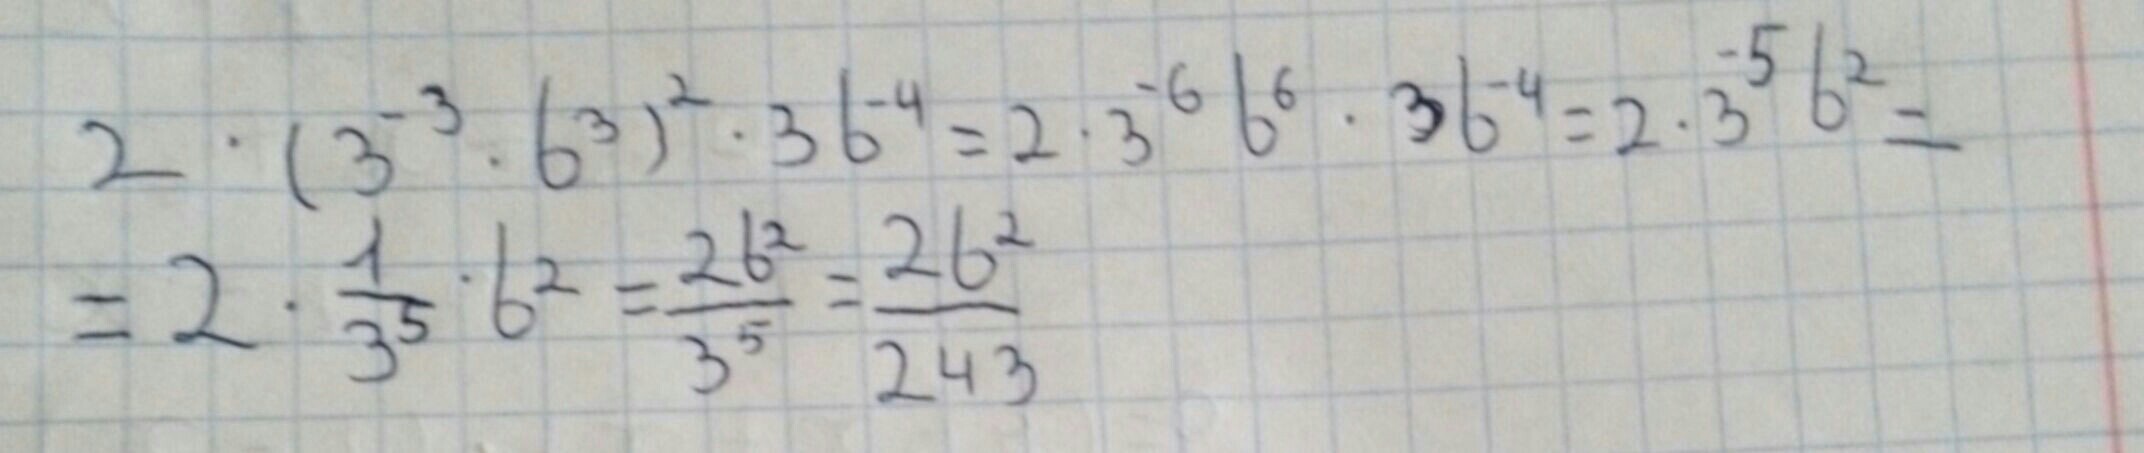 2 · (3⁻³ · b³)² · 3b⁻⁴ = 2 · 3⁻⁶ b⁶ · 3b⁻⁴ = 2 · 3⁻⁵ b² =
= 2 · 1/3⁵ · b² = 2b²/3⁵ = 2b²/243